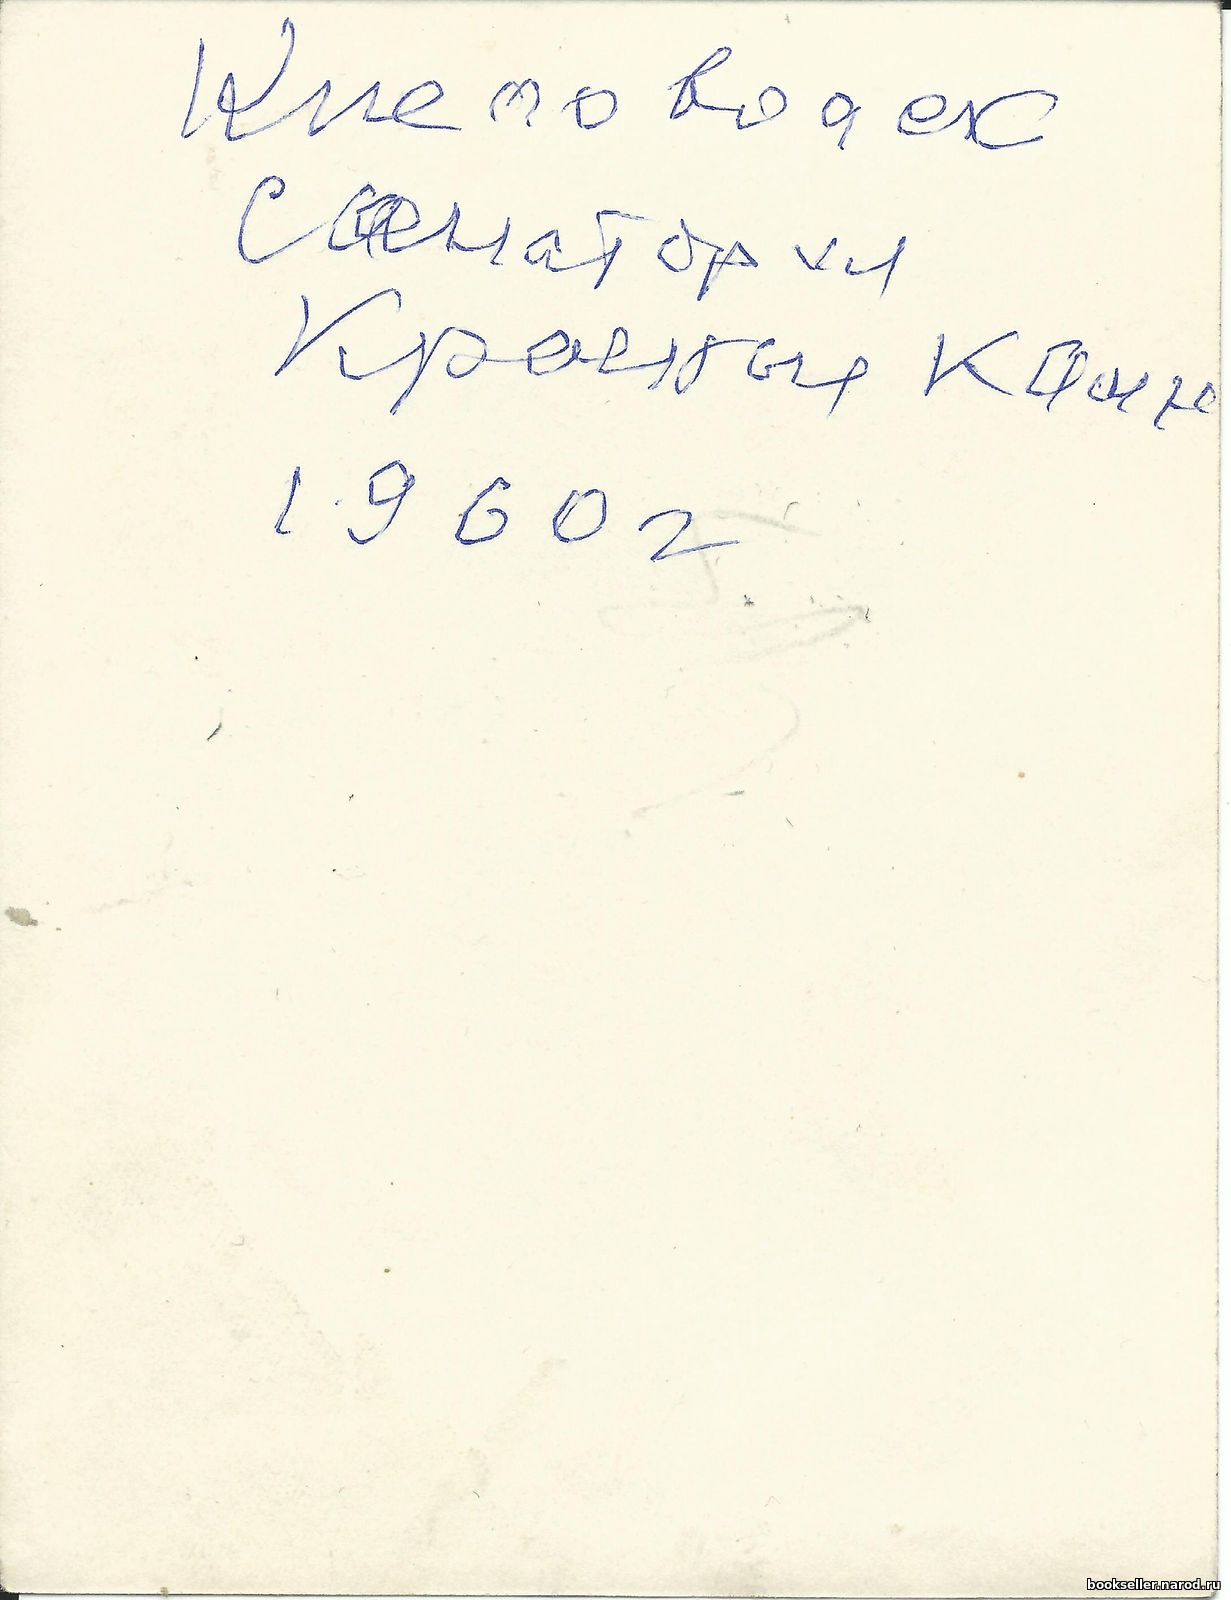 Кисловодск
Санатории
Красные Камн
1960г
bookseller.narod.ru